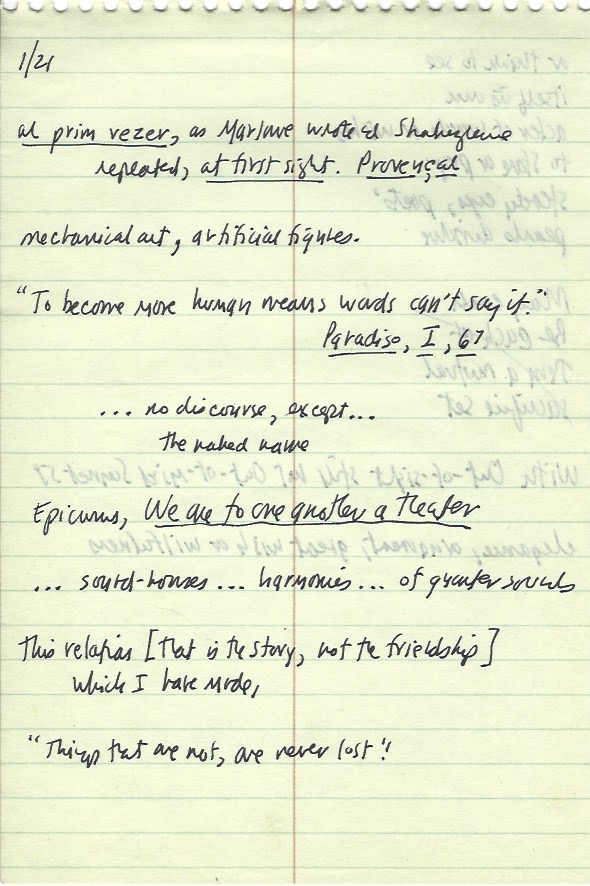 1/21
al prim vezer, as Marlowe wrote & Shakespeare
repeated, at first sight. Provençal
mechanical art, artificial figures.
"To become more human means words can't say it."
Paradiso, I, 67
... no discourse, except...
the naked name
Epicurus, We are to one another a theater
... sound-houses ... harmonies ... of quarter sounds
this relation [that is the story, not the friendship]
which I have made,
"Things that are not, are never lost"!